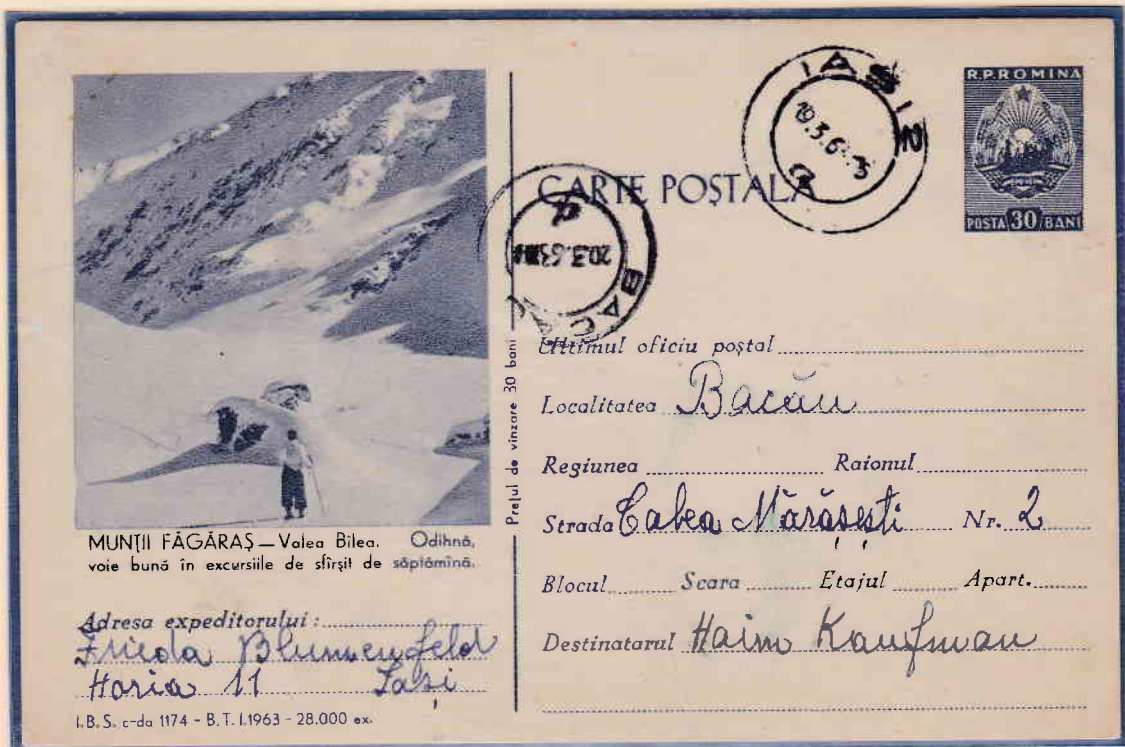 MUNȚII FĂGĂRAȘ — Valea Bîlea. Odihnă,
voie bună în excursiile de sfîrșit de săptămînă.
Adresa expeditorului:
Frieda Blumenfeld
Horia 11 Iași
I.B.S. c-da 1174 - B.T. I.1963 - 28.000 ex.
Prețul de vînzare 30 bani
CARTE POȘTALĂ
IAȘI 2
BACAU
20.3.63
R.P.ROMINA
POSTA 30 BANI
Ultimul oficiu poștal
Localitatea Bacău
Regiunea Raionul
Strada Calea Mărășești Nr. 2
Blocul Scara Etajul Apart.
Destinatarul Haim Kaufman